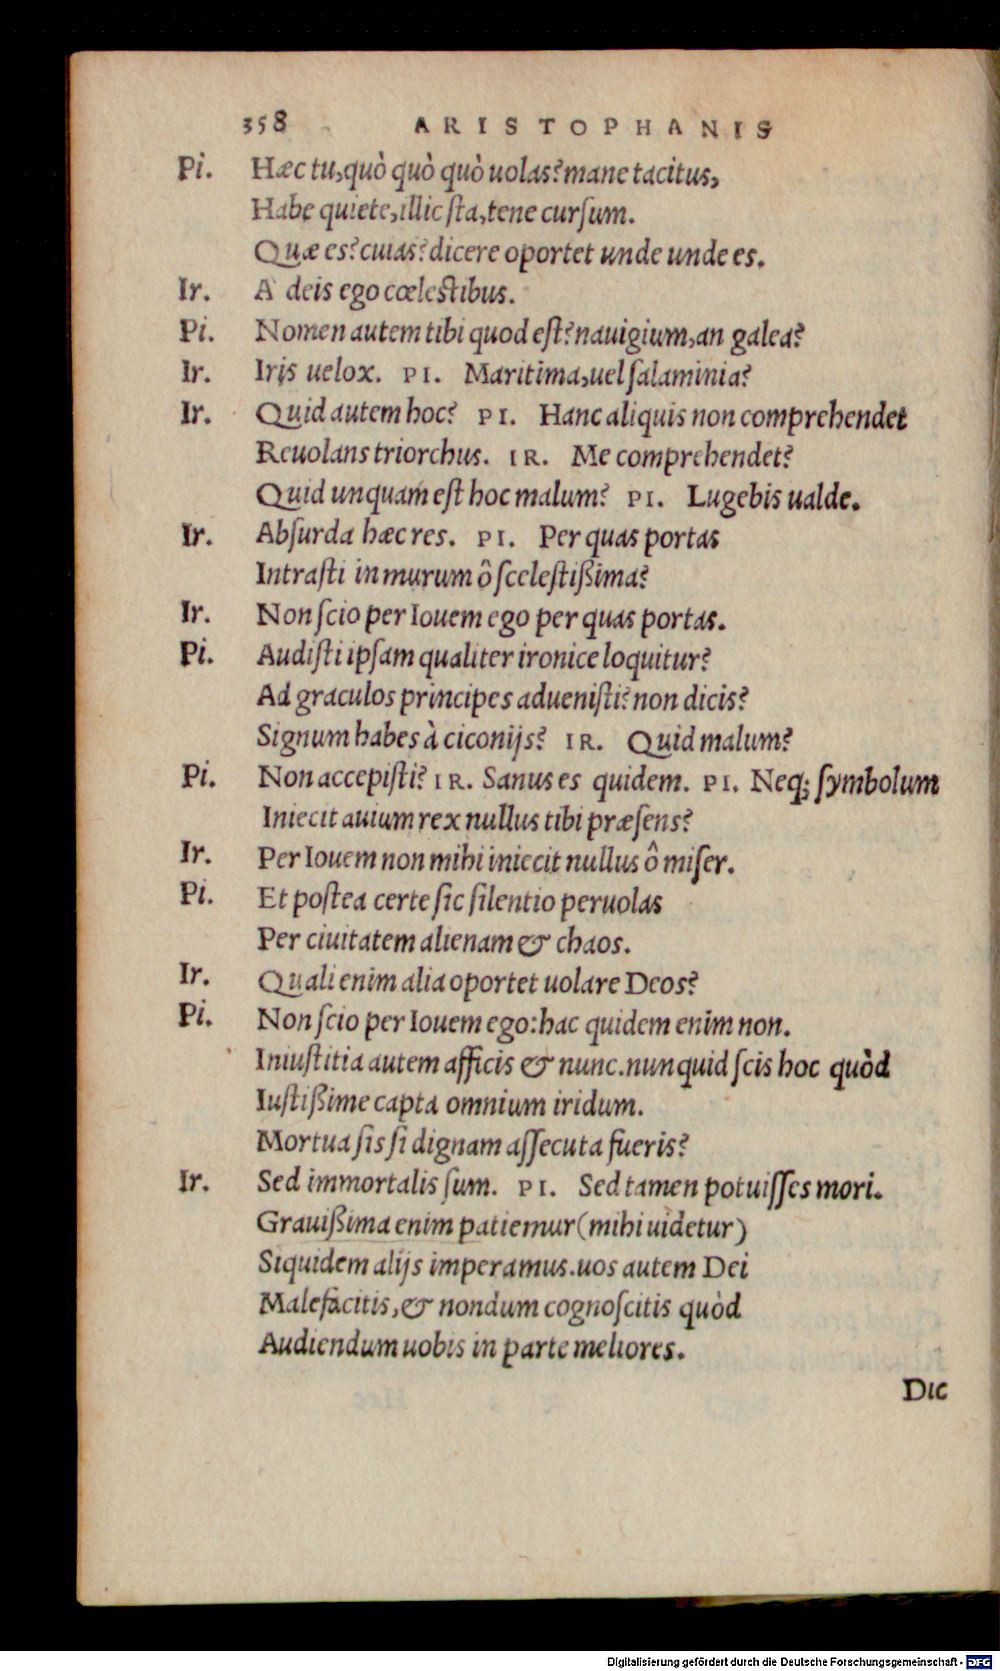 358 ARISTOPHANIS
Pi. Hæc tu, quò quò quò uolas? mane tacitus,
Habe quiete, illic ſta, tene curſum.
Quæ es? cuias? dicere oportet unde unde es.
Ir. A deis ego cœleſtibus.
Pi. Nomen autem tibi quod eſt? nauigium, an galea?
Ir. Iris uelox. PI. Maritima, uel ſalaminia?
Ir. Quid autem hoc? PI. Hanc aliquis non comprehendet
Reuolans triorchus. IR. Me comprehendet?
Quid unquam eſt hoc malum? PI. Lugebis ualde.
Ir. Abſurda hæc res. PI. Per quas portas
Intraſti in murum ô ſceleſtißima?
Ir. Non ſcio per Iouem ego per quas portas.
Pi. Audiſti ipſam qualiter ironice loquitur?
Ad graculos principes adueniſti? non dicis?
Signum habes à ciconijs? IR. Quid malum?
Pi. Non accepiſti? IR. Sanus es quidem. PI. Neq; ſymbolum
Iniecit auium rex nullus tibi præſens?
Ir. Per Iouem non mihi iniecit nullus ô miſer.
Pi. Et poſtea certe ſic ſilentio peruolas
Per ciuitatem alienam & chaos.
Ir. Quali enim alia oportet uolare Deos?
Pi. Non ſcio per Iouem ego: hac quidem enim non.
Iniuſtitia autem afficis & nunc. nunquid ſcis hoc quòd
Iuſtißime capta omnium iridum.
Mortua ſis ſi dignam aſſecuta fueris?
Ir. Sed immortalis ſum. PI. Sed tamen potuiſſes mori.
Grauißima enim patiemur (mihi uidetur)
Siquidem alijs imperamus. uos autem Dei
Malefacitis, & nondum cognoſcitis quòd
Audiendum uobis in parte meliores.
Dic
Digitalisierung gefördert durch die Deutsche Forschungsgemeinschaft - DFG